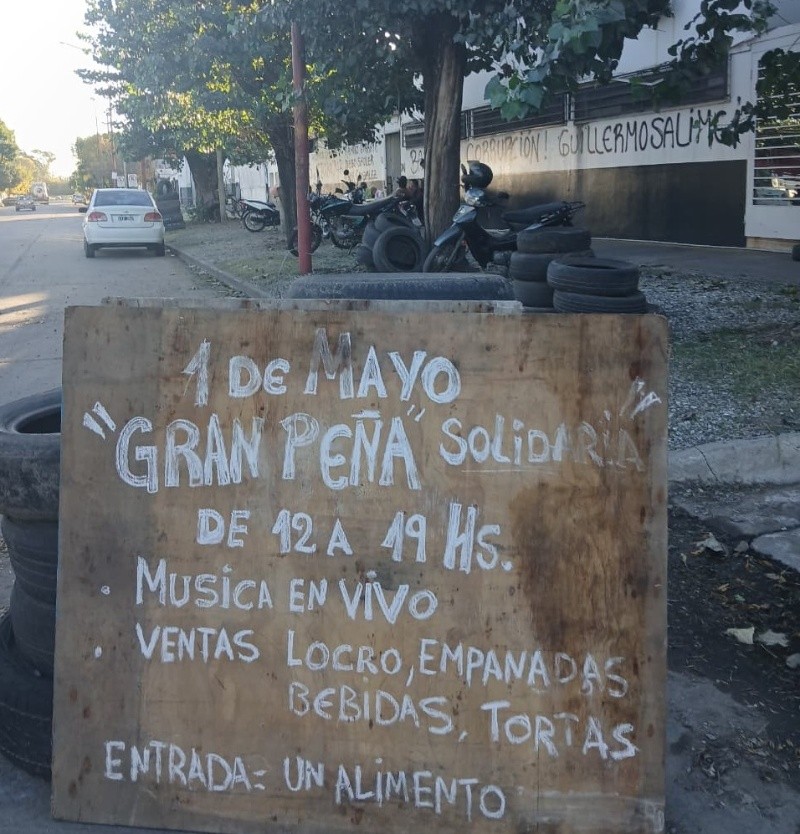 CORRUPCIÓN! GUILLERMO SALIME
1 DE MAYO
"GRAN PEÑA" SOLIDARIA"
DE 12 A 19 Hs.
• MUSICA EN VIVO
• VENTAS LOCRO, EMPANADAS
BEBIDAS, TORTAS
ENTRADA= UN ALIMENTO